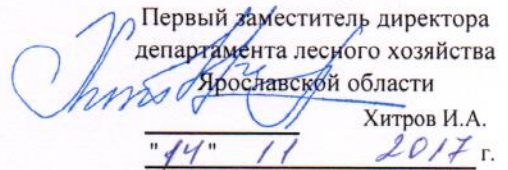 Первый заместитель директора
департамента лесного хозяйства
Ярославской области
Хитров И.А.
"14" 11 2017 г.